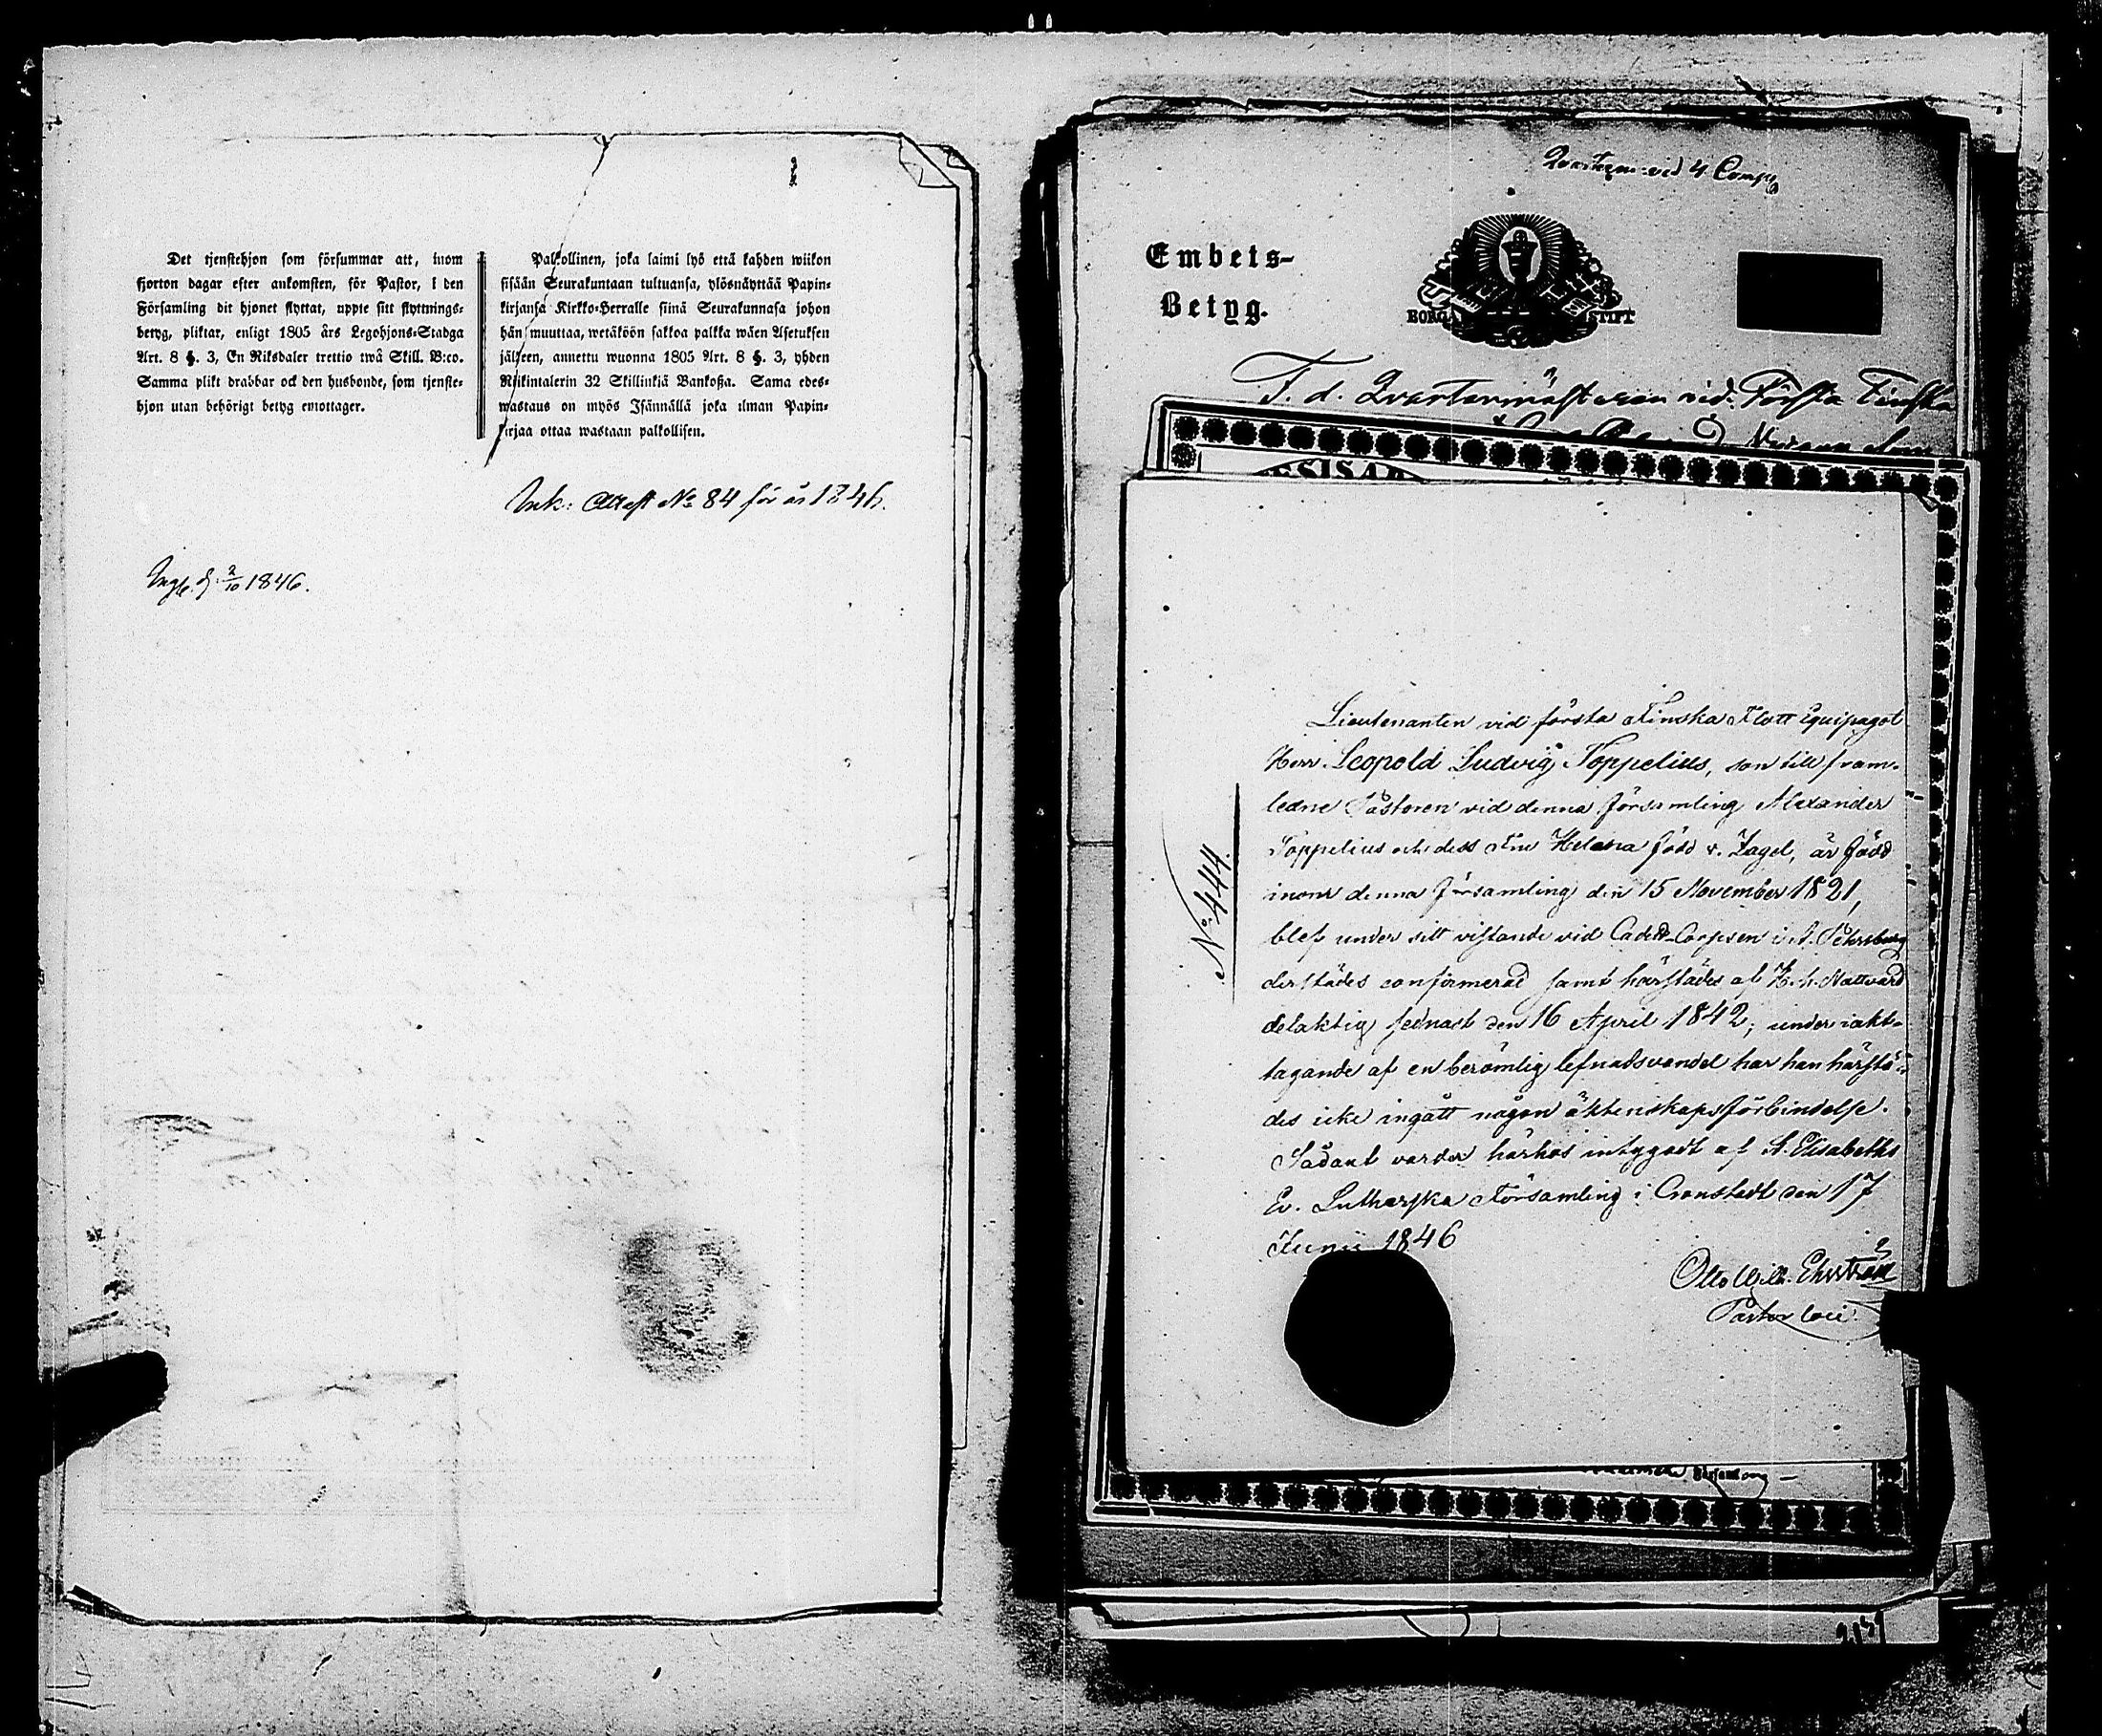 Det tjenstehjon som försummar att, inom
fjorton dagar efter ankomsten, för Pastor, i den
Församling dit hjonet flyttat, uppte sitt flyttnings-
betyg, pliktar, enligt 1805 års Legohjons-Stadga
Art. 8 §. 3, En Riksdaler trettio twå Skill. B:co.
Samma plikt drabbar ock den husbonde, som tjenste-
hjon utan behörigt betyg emottager.
Palkollinen, joka laimi lyö että kahden wiikon
sisään Seurakuntaan tultuansa, ylösnäyttää Papin-
kirjansa Kirkko-Herralle siinä Seurakunnasa johon
hän muuttaa, wetäköön sakkoa palkka wäen Asetuksen
jälkeen, annettu wuonna 1805 Art. 8 §. 3, yhden
Riikintalerin 32 Skillinkiä Bankoßa. Sama edes-
wastaus on myös Isännällä joka ilman Papin-
kirjaa ottaa wastaan palkollisen.
Ink: Attest No 84 för år 1846.
Ingk. d. 2/10 1846.
vid 4 Comp
Embets-
Betyg.
BORGÅ STIFT
F. d. Qvartermästaren vid Första Finska
No 444.
Lieutenanten vid första Finska Flott Equipaget
Herr Leopold Ludvig Toppelius, son till fram-
ledne Pastoren vid denna Församling Alexander
Toppelius och dess Fru Helena född v. Zagel, är född
inom denna Församling den 15 November 1821,
blef under sitt vistande vid Cadett-Corpsen i St. Petersburg
derstädes confirmerad samt härstädes af H. h. Nattvard
delaktig sednast den 16 April 1842; under iakt-
tagande af en berömlig lefnadsvandel har han härstä-
des icke ingått någon äktenskapsförbindelse.
Sådant varder härhos intygadt af St. Elisabeths
Ev. Lutherska Församling i Cronstadt den 17
Junii 1846
Otto Wilh. Ehrström
Pastor loci.